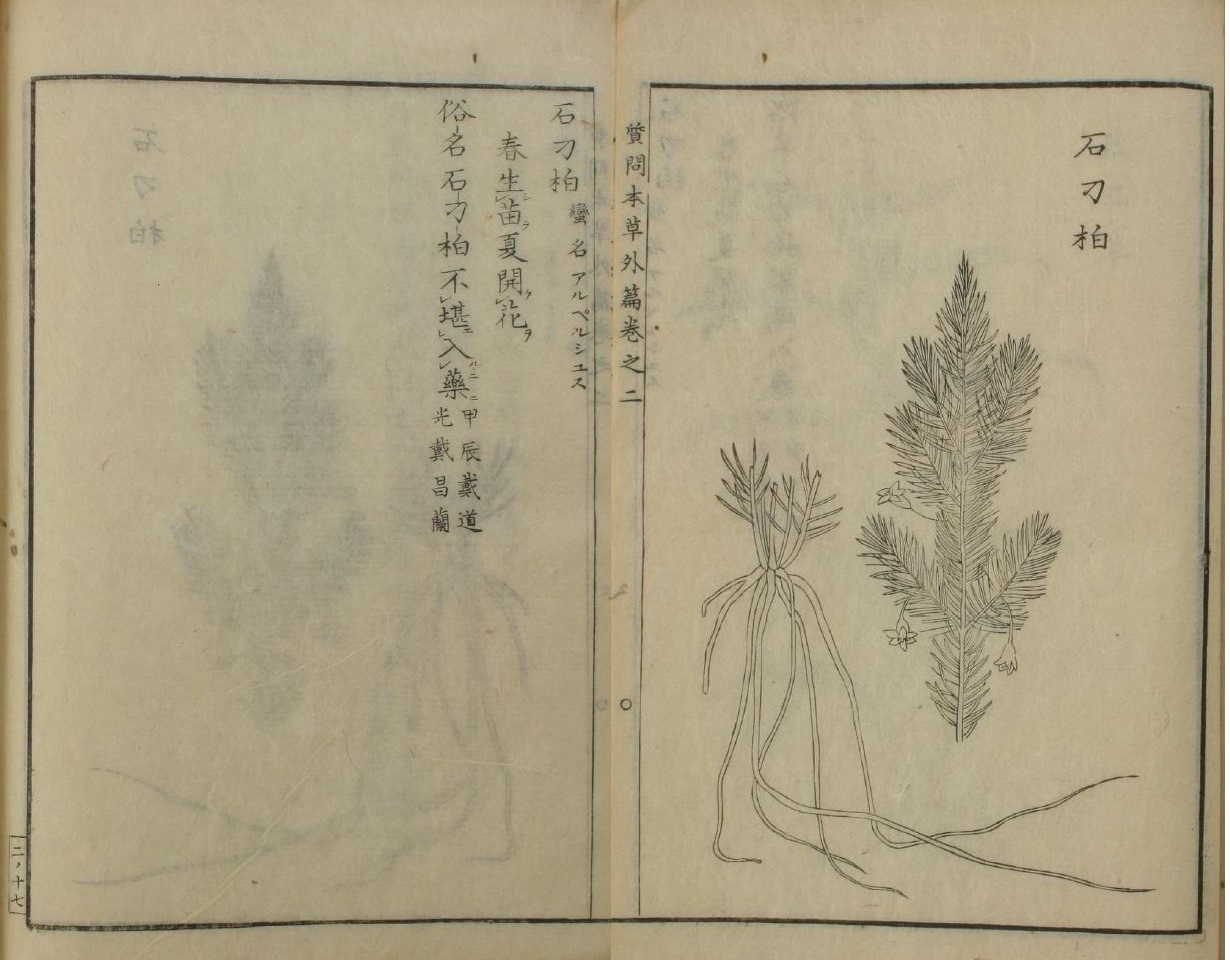 石刁柏
質問本草外篇巻之二
石刁柏 蠻名アルペルシユス
春生苗夏開花
俗名石刁柏不堪入藥 甲辰戴道
光戴昌蘭
二ノ十七